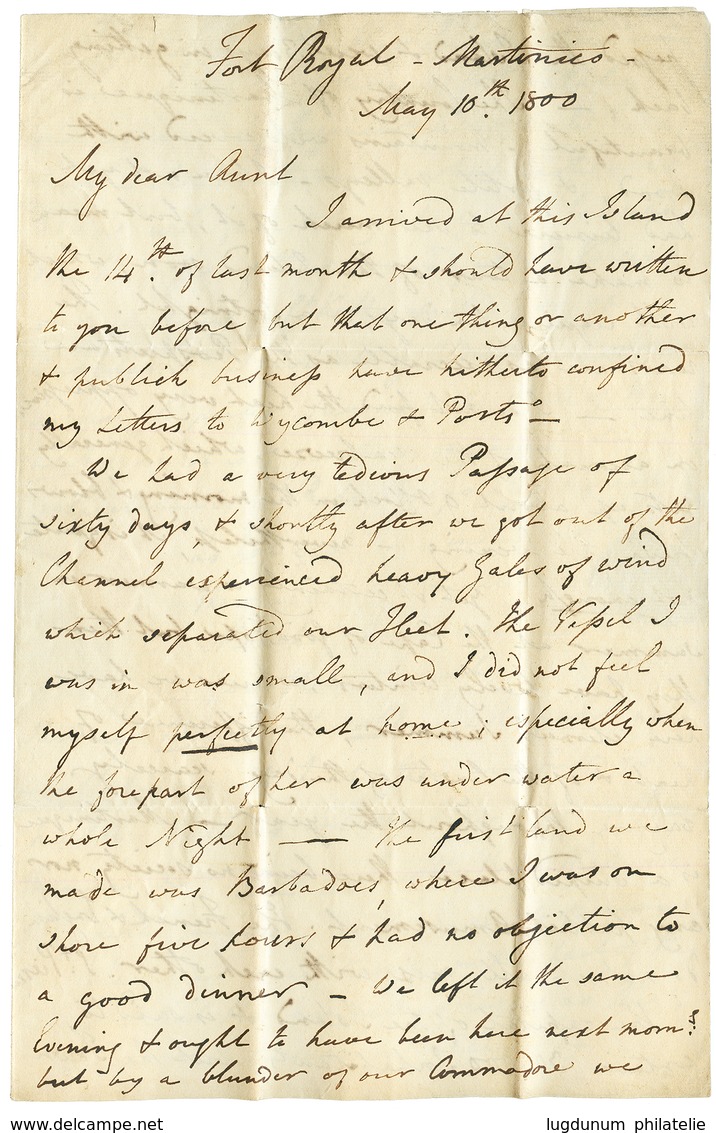 Fort Royal - Martinico -
May 10.th 1800
My dear Aunt
I arrived at this Island
the 14.th of last month & should have written
to you before but that one thing or another
& publick business have hitherto confined
my Letters to Wycombe & Ports.o
We had a very tedious Passage of
sixty days, & shortly after we got out of the
Channel experienced heavy Gales of wind
which separated our Fleet. The Vessel I
was in was small, and I did not feel
myself perfectly at home; especially when
the forepart of her was under water a
whole Night — The first land we
made was Barbadoes, where I was on
shore five hours & had no objection to
a good dinner - We left it the same
Evening & ought to have been here next morn.g
but by a blunder of our Commodore we
www.delcampe.net
lugdunum philatelie